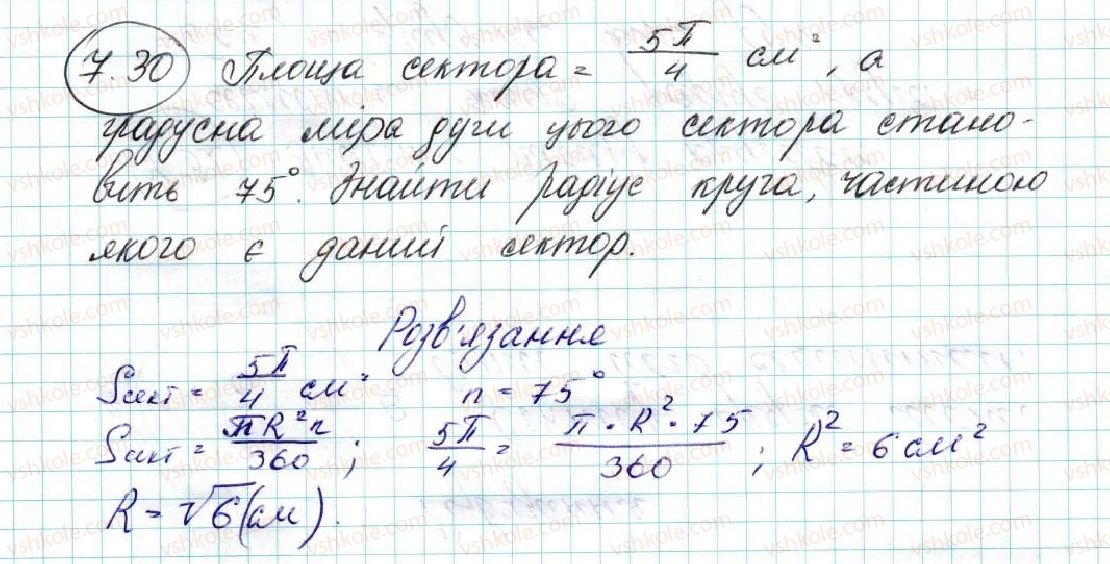 7.30 Площа сектора = 5π/4 см², а
градусна міра дуги цього сектора стано-
вить 75°. Знайти радіус круга, частиною
якого є даний сектор.
Розв'язання
Sсект = 5π/4 см² n = 75°
Sсект = πR²n/360 ; 5π/4 = π·R²·75/360 ; R² = 6 см²
R = √6 (см).